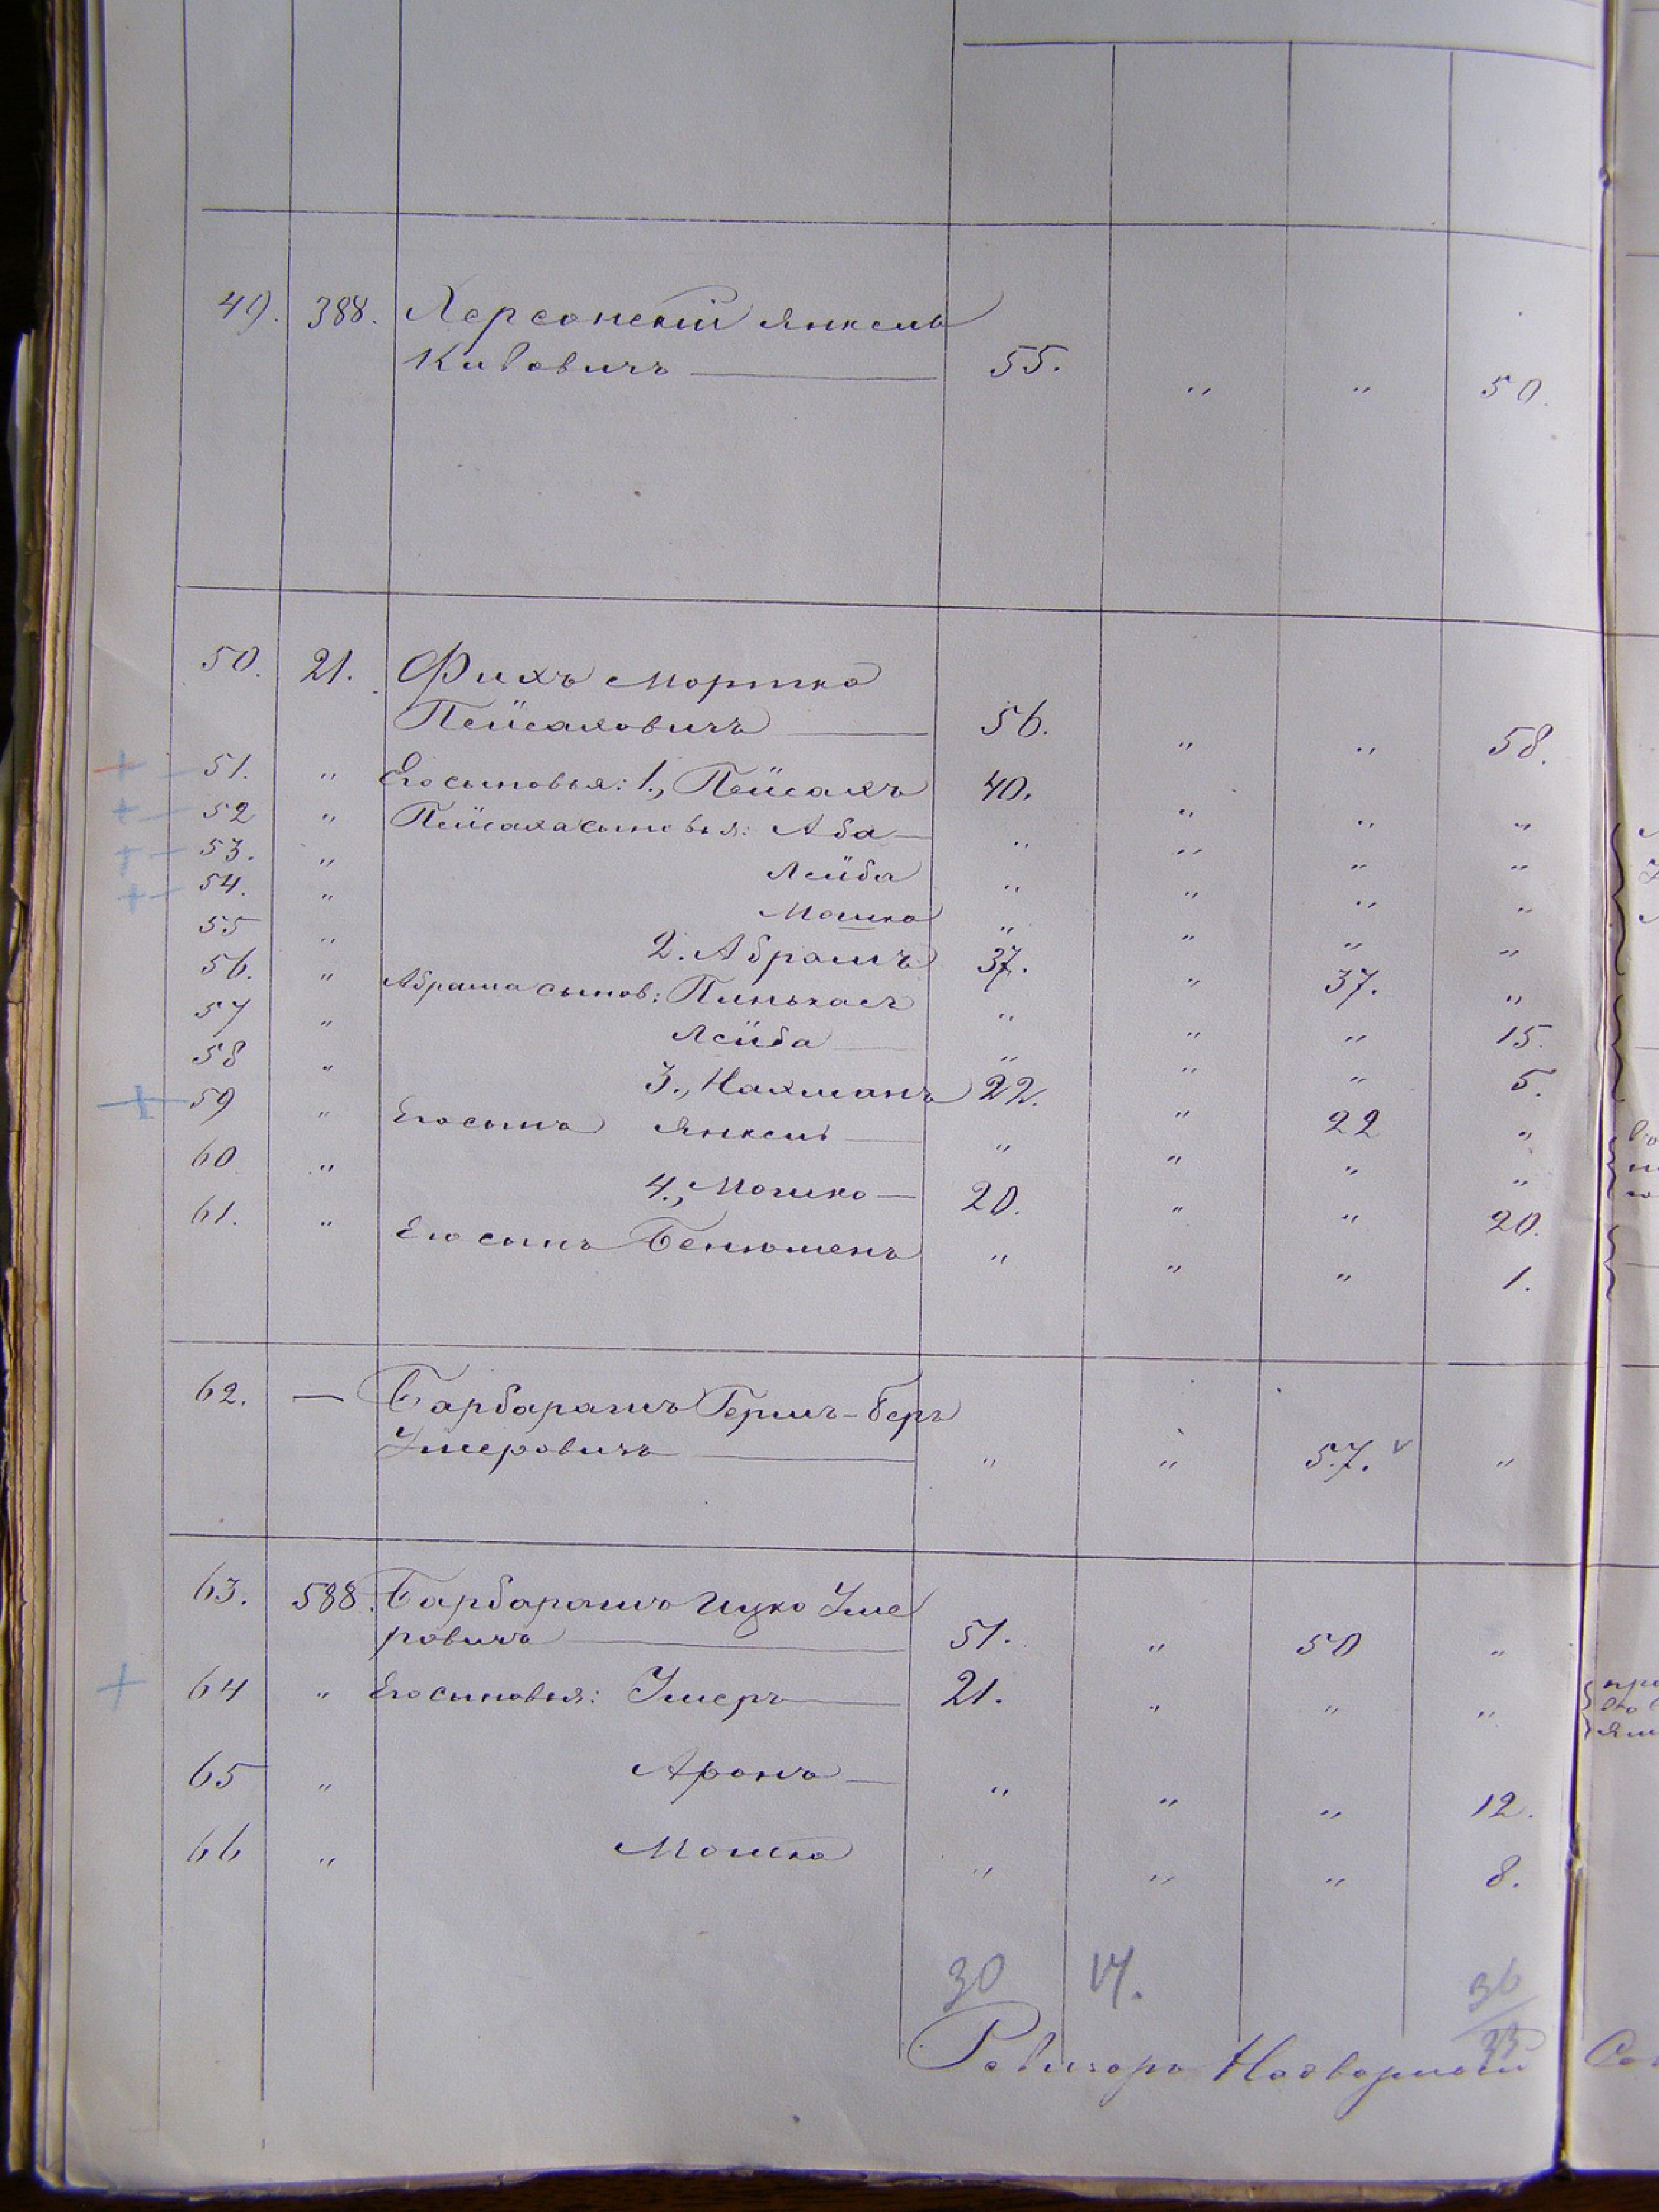 49. 388. Херсонскій Янкель
Кивовичъ — 55. " " 50.
50. 21. Фихъ Мортко
Пейсаховичъ — 56. " " 58.
51. " Его сыновья: 1., Пейсахъ 40. " " "
52 " Пейсаха сыновья: Аба — " " " "
53. " Лейба " " " "
54. " Мошко " " " "
55 " 2. Абрамъ 37. " 37. "
56. " Абрама сынов: Пинькасъ " " " 15.
57 " Лейба — " " " 5.
58 " 3., Нахманъ 22. " 22 "
59 " Его сынъ Янкель — " " " "
60 " 4., Мошко — 20. " " 20.
61. " Его сынъ Беньюменъ " " " 1.
62. — Барбарашъ Гершъ-Беръ
Умеровичъ — " " 57. "
63. 588. Барбарашъ Ицко Уме
ровичъ — 51. " 50 "
64 " Его сыновья: Умеръ — 21. " " "
65 " Аронъ — " " " 12.
66 " Мошко " " " 8.
30 17. 36
33
Ревизоръ